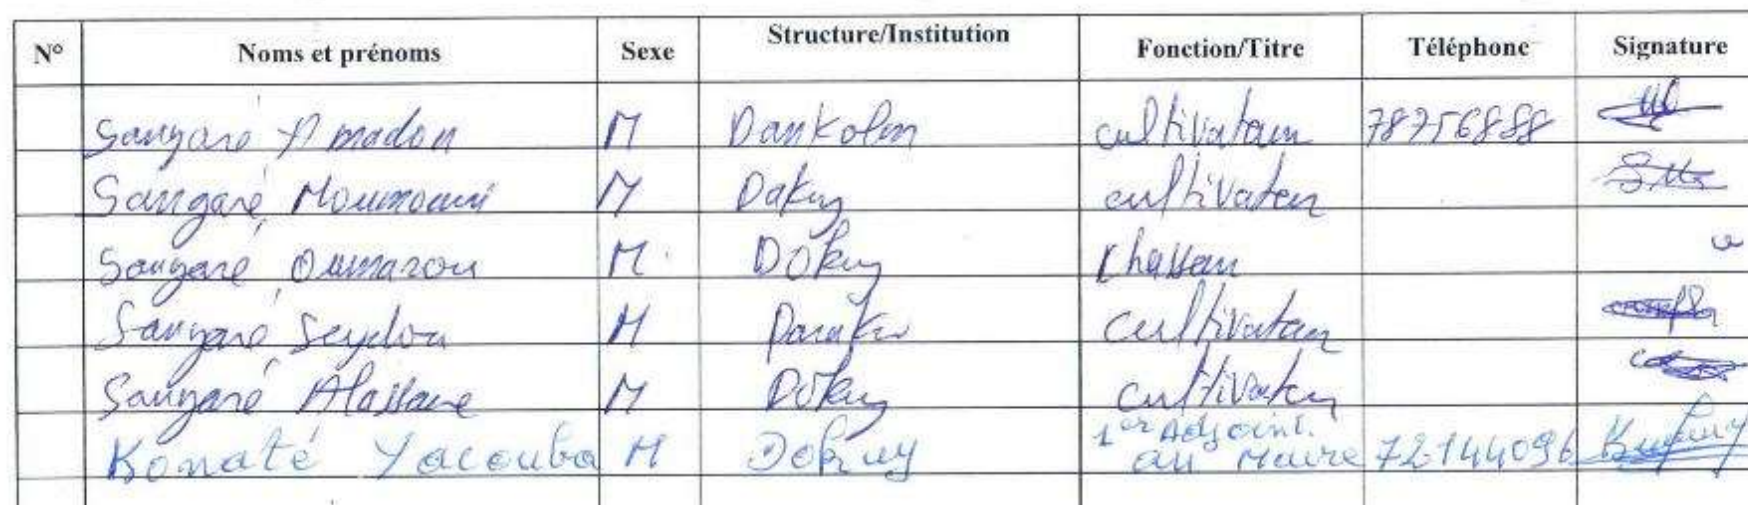 N° Noms et prénoms Sexe Structure/Institution Fonction/Titre Téléphone Signature
Sangaré Amadou M Dankolm cultivateur 78756888
Sangaré Moumouni M Dokuy cultivateur
Sangaré Oumarou M Dokuy
Sangaré Seydou M cultivateur
Sangaré Alassane M Dokuy cultivateur
Konaté Yacouba M Dokuy 1er Adjoint. au Maire 72144096